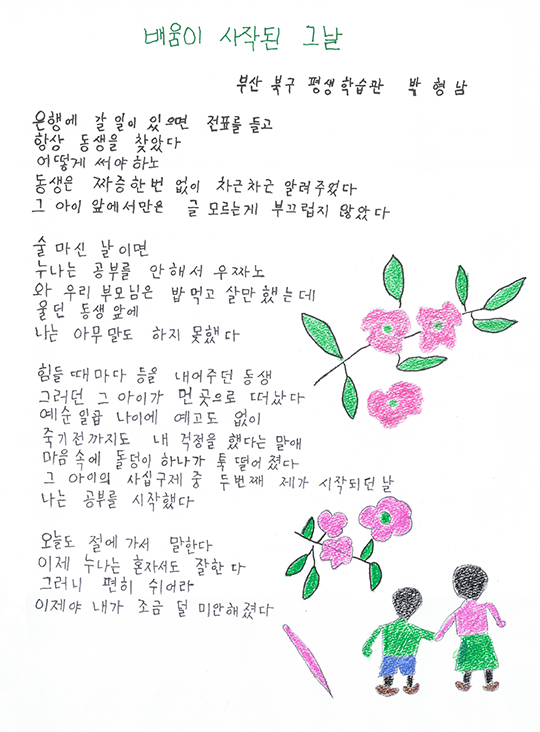 배움이 사작된 그날
부산 북구 평생학습관 박형남
은행에 갈 일이 있으면 전표를 들고
항상 동생을 찾았다
어떻게 써야 하노
동생은 짜증한번 없이 차근차근 알려주었다
그 아이 앞에서만은 글 모르는게 부끄럽지 않았다
술 마신 날이면
누나는 공부를 안해서 우짜노
와 우리 부모님은 밥먹고 살만 했는데
울던 동생 앞에
나는 아무말도 하지 못했다
힘들 때마다 등을 내어주던 동생
그러던 그 아이가 먼곳으로 떠났다
예순일곱 나이에 예고도 없이
죽기전까지도 내 걱정을 했다는 말애
마음 속에 돌덩이 하나가 툭 떨어졌다
그 아이의 사십구제 중 두번째 제가 시작되던 날
나는 공부를 시작했다
오늘도 절에 가서 말한다
이제 누나는 혼자서도 잘한다
그러니 편히 쉬어라
이제야 내가 조금 덜 미안해졌다